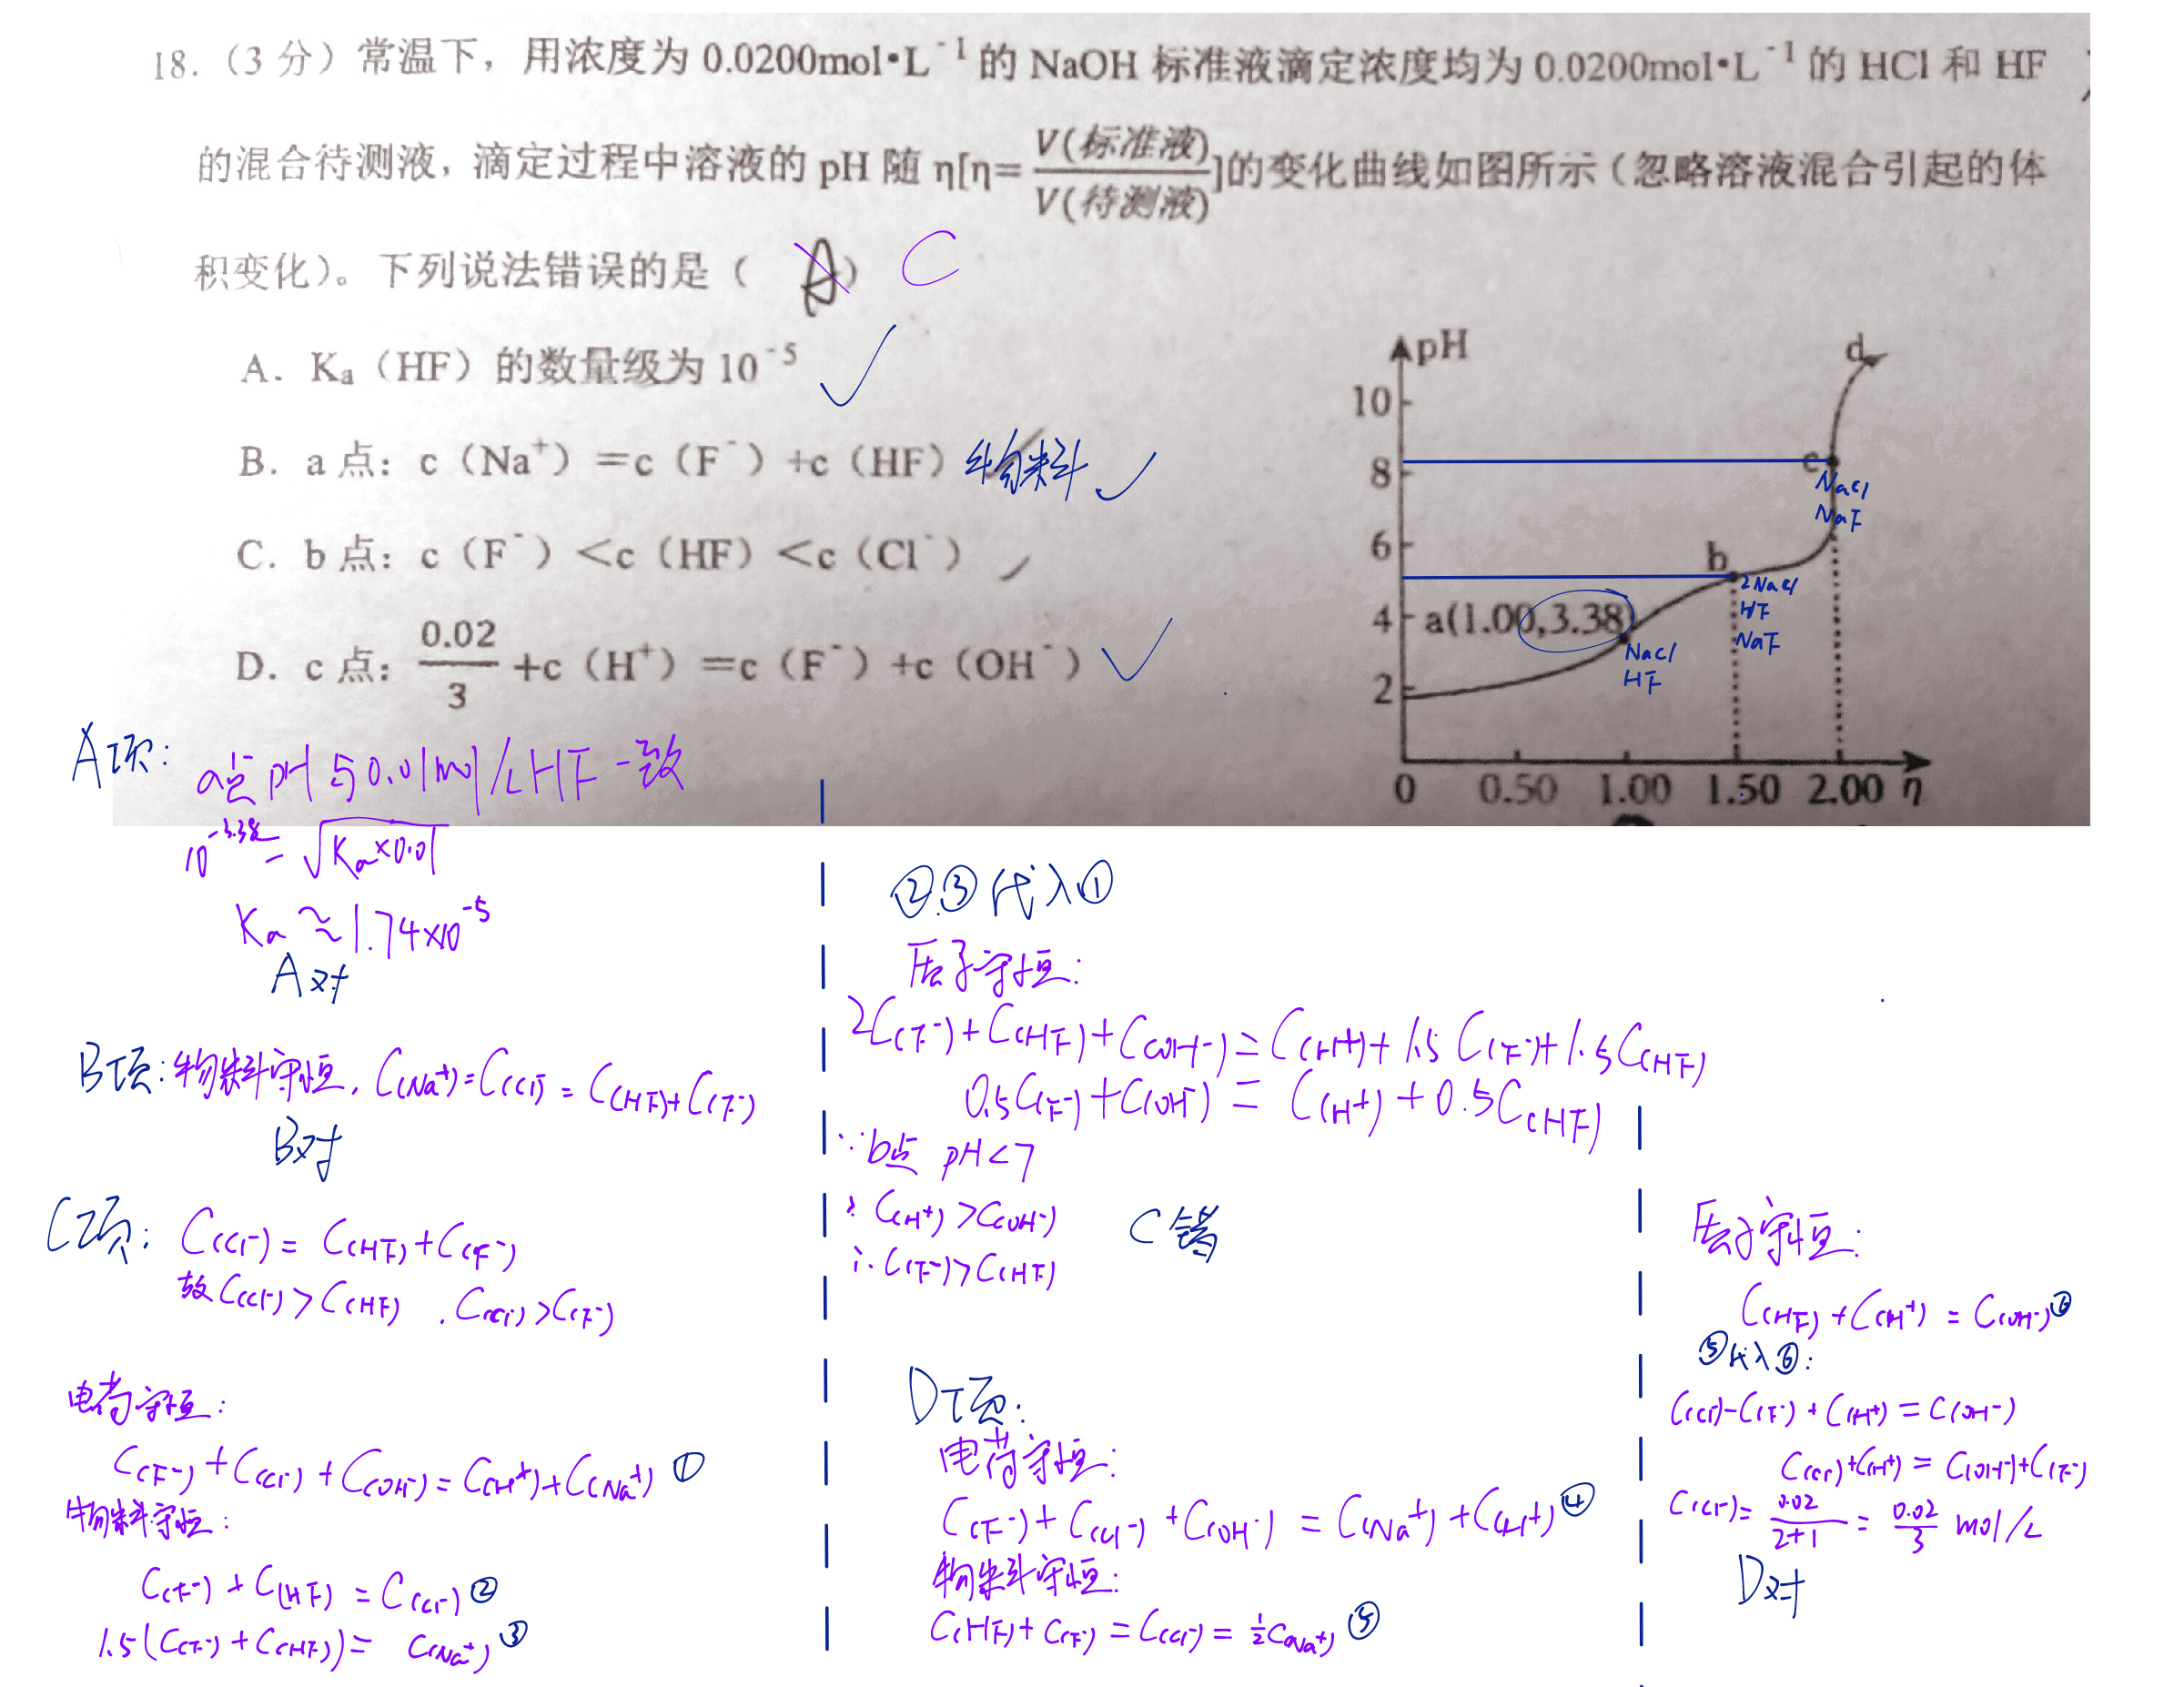 18.（3 分）常温下，用浓度为 0.0200mol•L⁻¹ 的 NaOH 标准液滴定浓度均为 0.0200mol•L⁻¹ 的 HCl 和 HF
的混合待测液，滴定过程中溶液的 pH 随 η[η=V(标准液)/V(待测液)]的变化曲线如图所示（忽略溶液混合引起的体
积变化）。下列说法错误的是（ A ） C
A．Kₐ（HF）的数量级为 10⁻⁵ ✓
B．a 点：c（Na⁺）=c（F⁻）+c（HF） 物料 ✓
C．b 点：c（F⁻）<c（HF）<c（Cl⁻）
D．c 点：0.02/3+c（H⁺）=c（F⁻）+c（OH⁻） ✓
pH
d
10
8
c
NaCl
NaF
6
b
2NaCl
HF
NaF
4
a(1.00,3.38)
NaCl
HF
2
0 0.50 1.00 1.50 2.00 η
A项：
a点pH与0.01mol/LHF一致
10⁻³·³⁸=√Kₐ×0.01
Kₐ≈1.74×10⁻⁵
A对
B项：物料守恒，C(Na⁺)=C(Cl⁻)=C(HF)+C(F⁻)
B对
C项：C(Cl⁻)=C(HF)+C(F⁻)
故C(Cl⁻)>C(HF)．C(Cl⁻)>C(F⁻)
电荷守恒：
C(F⁻)+C(Cl⁻)+C(OH⁻)=C(H⁺)+C(Na⁺) ①
物料守恒：
C(F⁻)+C(HF)=C(Cl⁻) ②
1.5(C(F⁻)+C(HF))=C(Na⁺) ③
②.③代入①
质子守恒：
2C(F⁻)+C(HF)+C(OH⁻)=C(H⁺)+1.5C(F⁻)+1.5C(HF)
0.5C(F⁻)+C(OH⁻)=C(H⁺)+0.5C(HF)
∵b点 pH<7
∴C(H⁺)>C(OH⁻)
C错
∴C(F⁻)>C(HF)
D项：
电荷守恒：
C(F⁻)+C(Cl⁻)+C(OH⁻)=C(Na⁺)+C(H⁺) ④
物料守恒：
C(HF)+C(F⁻)=C(Cl⁻)=½C(Na⁺) ⑤
质子守恒：
C(HF)+C(H⁺)=C(OH⁻) ⑥
⑤代入⑥：
C(Cl⁻)-C(F⁻)+C(H⁺)=C(OH⁻)
C(Cl⁻)+C(H⁺)=C(OH⁻)+C(F⁻)
C(Cl⁻)=0.02/2+1=0.02/3 mol/L
D对